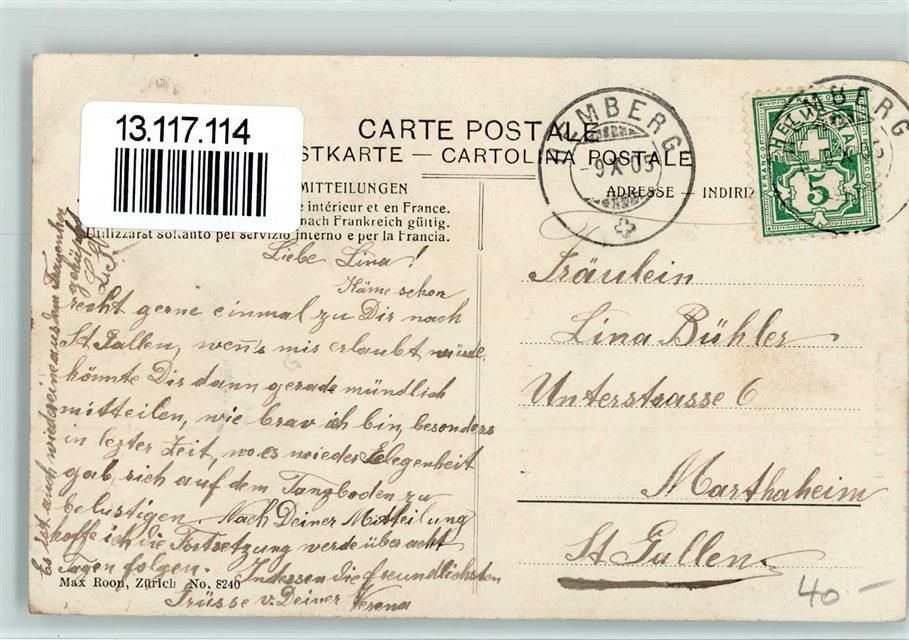 13.117.114
CARTE POSTALE
STKARTE — CARTOLINA POSTALE
MITTEILUNGEN
ADRESSE — INDIRIZ
e intérieur et en France.
nach Frankreich gültig.
Utilizzarsi soltanto pel servizio interno e per la Francia.
Liebe Lina!
Käme schon
recht gerne einmal zu Dir nach
St Gallen, wen's mir erlaubt würde,
könnte Dir dann gerade mündlich
mitteilen, wie brav ich bin, besonders
in lezter Zeit, wo es wieder Gelegenheit
gab, sich auf dem Tanzboden zu
belustigen. Nach Deiner Mitteilung
hoffe ich die Fortsetzung werde über acht
Tagen folgen. Indessen die freundlichsten
Grüsse v. Deiner Verena
Es ist auch wieder eine aus dem
Max Roon, Zürich No. 8240
BERG
-9 X 05
HELVETIA
FRANCO
5
Fräulein
Lina Bühler
Unterstrasse 6
Marthaheim
St Gallen
40.-